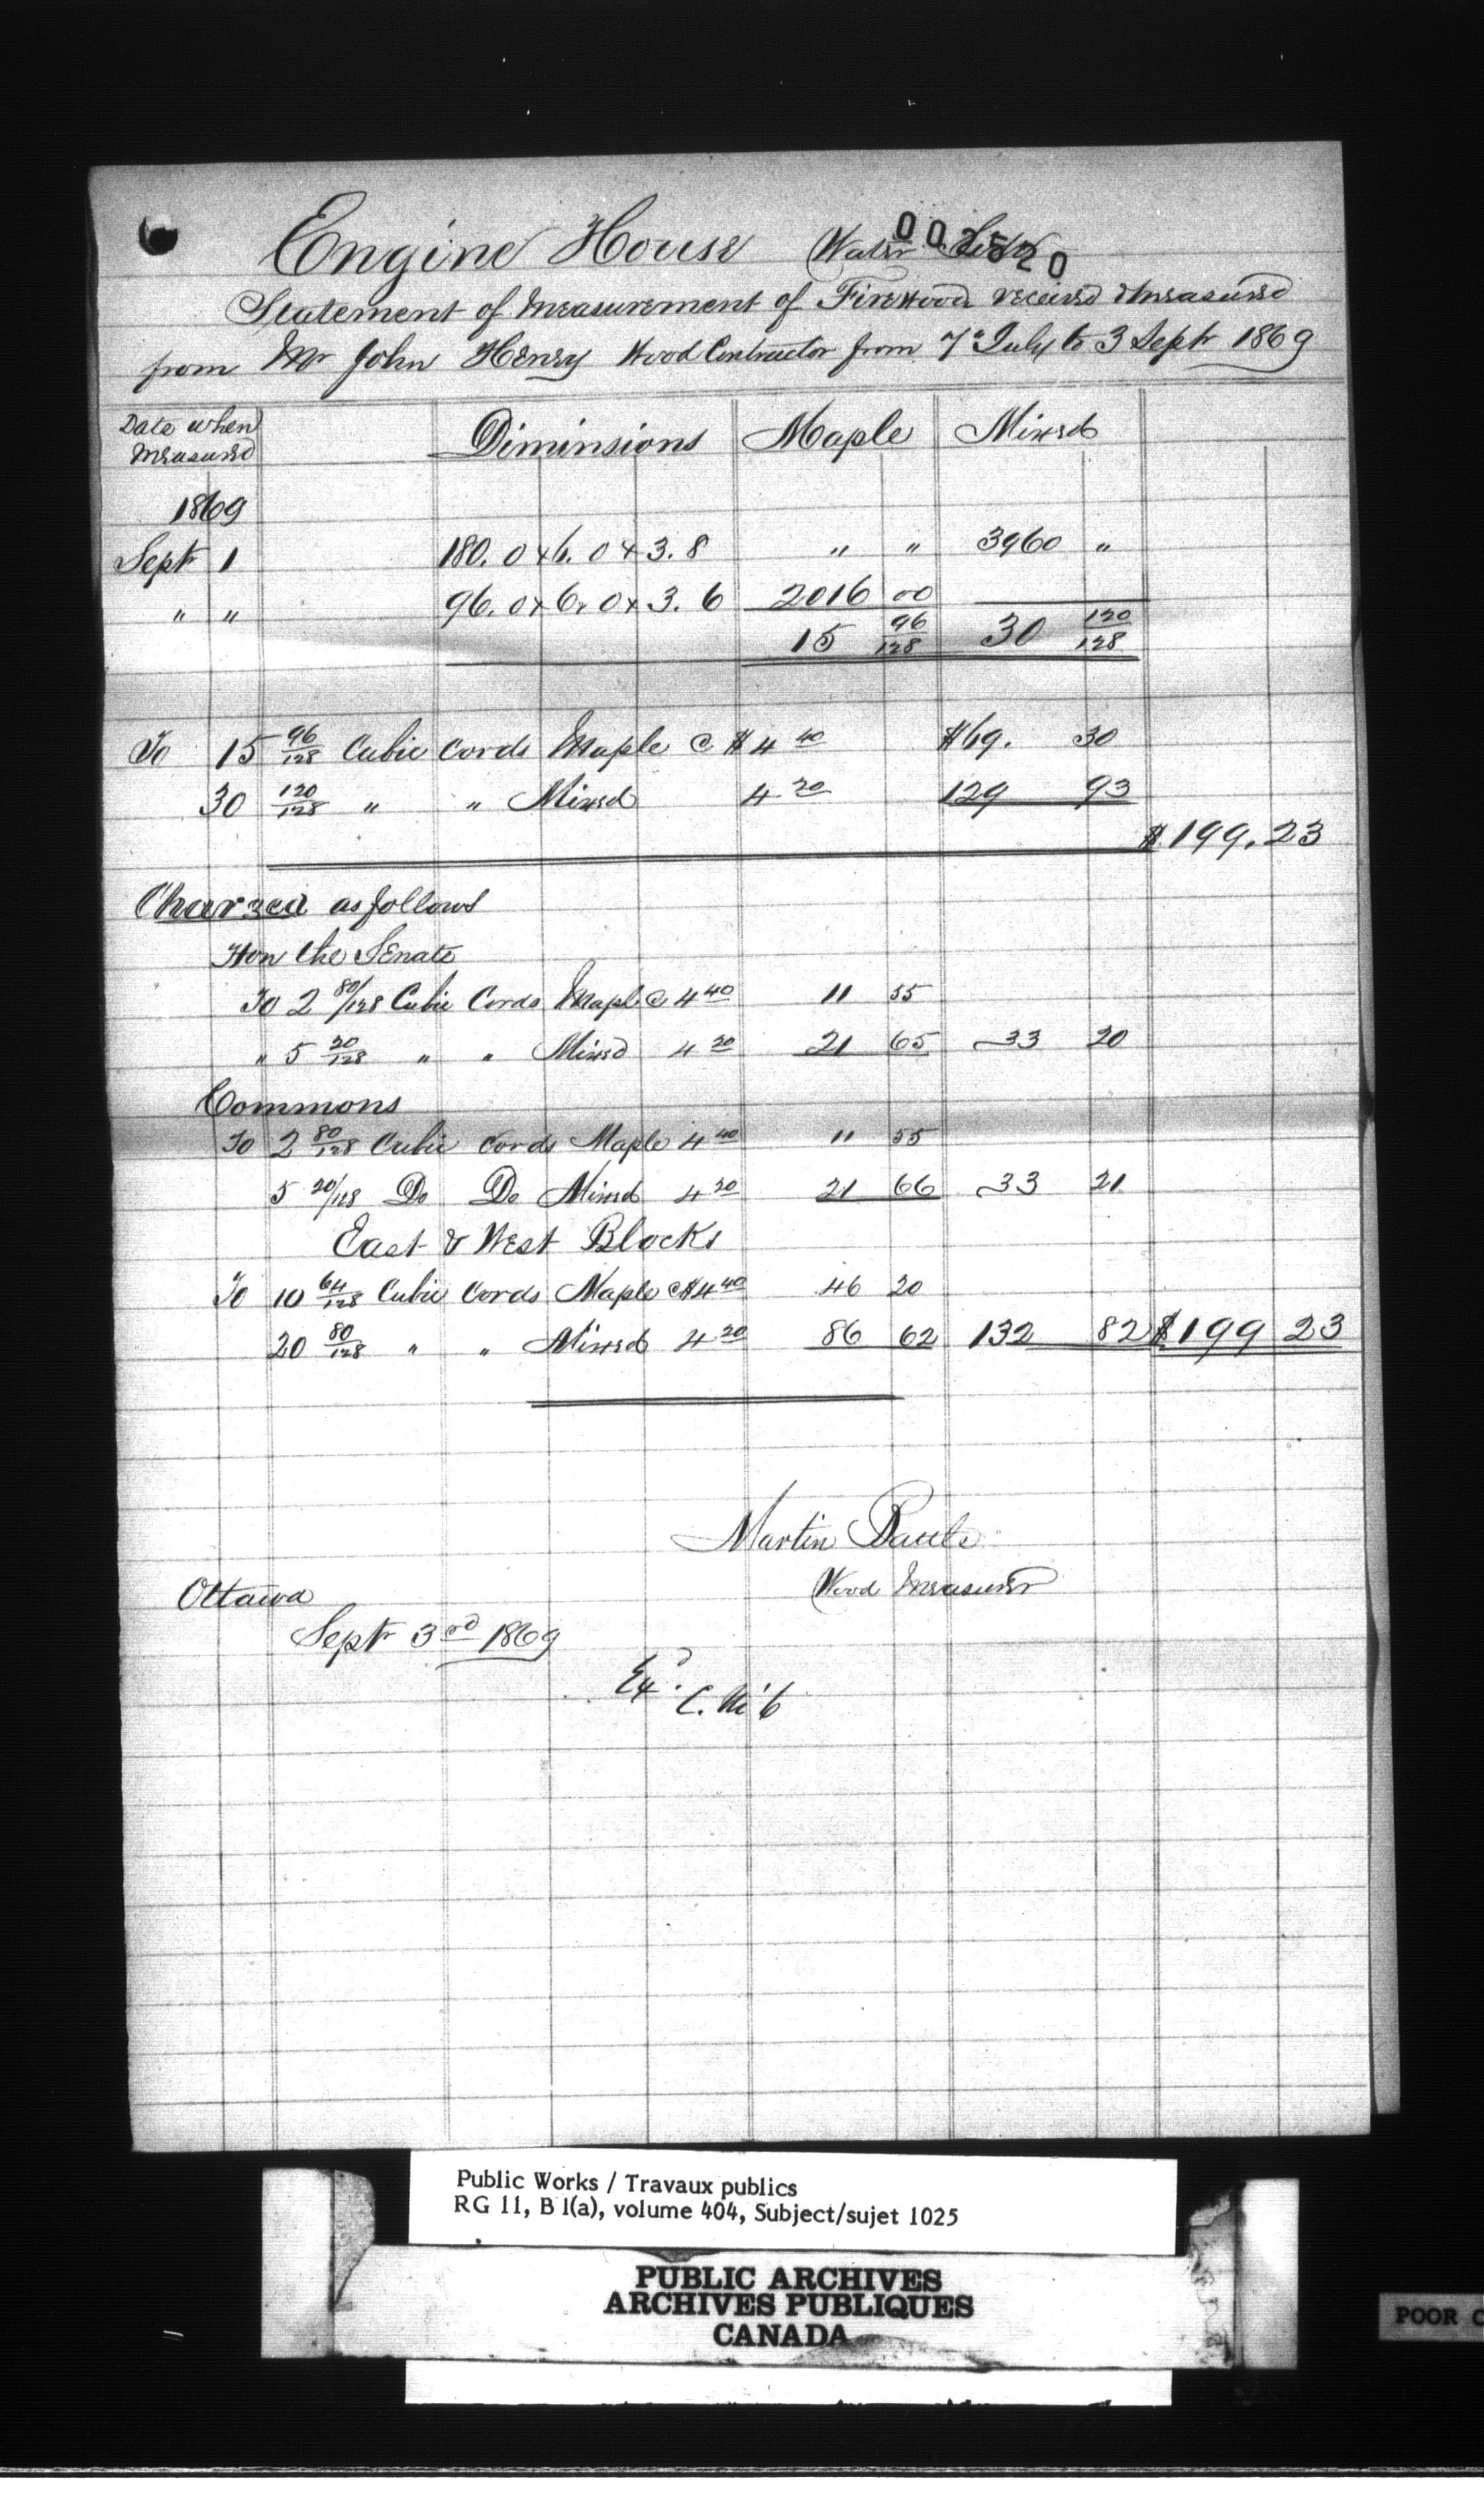 Engine House Water
002520
Statement of Measurement of Firewood received & measured
from Mr John Henry Wood Contractor from 7th July to 3 Septr 1869
Date when Measured Diminsions Maple Mixed
1869
Septr 1 180.0 x 6.0 x 3.8 " " 3960 "
" " 96.0 x 6.0 x 3.6 2016 00
15 96/128 30 120/128
To 15 96/128 Cubic Cords Maple @ $4 40 $69. 30
30 120/128 " " Mixed 4 20 129 93
$199.23
Charged as follows
Hon the Senate
To 2 80/128 Cubic Cords Maple @ 4 40 11 55
" 5 20/128 " " Mixed 4 20 21 65 33 20
Commons
To 2 80/128 Cubic Cords Maple 4 40 11 55
5 20/128 Do Do Mixed 4 20 21 66 33 21
East & West Blocks
To 10 64/128 Cubic Cords Maple @ $4 40 46 20
20 80/128 " " Mixed 4 20 86 62 132 82 $199 23
Martin
Wood Measurer
Ottawa
Septr 3rd 1869
Exd.
Public Works / Travaux publics
RG 11, B 1(a), volume 404, Subject/sujet 1025
PUBLIC ARCHIVES
ARCHIVES PUBLIQUES
CANADA
POOR